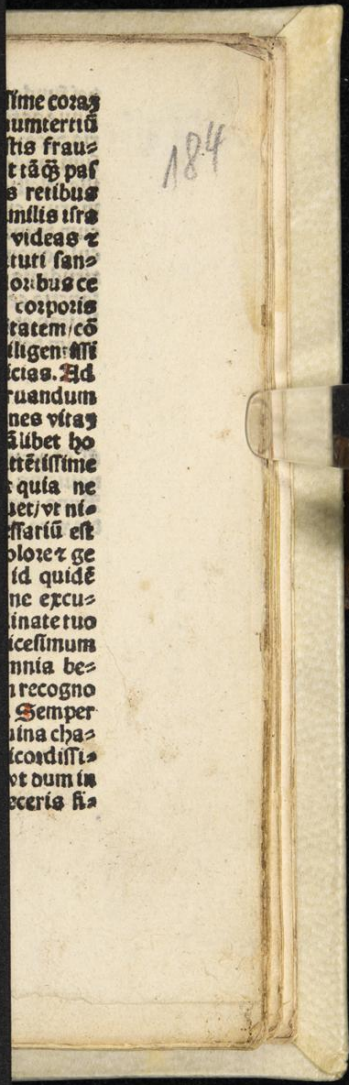 184
ſſime coraꝫ
numtertiū
ſtis frau⸗
t tāꝙ̄ paſ
s retibus
milis iſra
videas ⁊
tuti ſan⸗
oribus ce
corporis
tatem/cō
iligentiſſi
cias. Ad
ruandum
nes vitaꝫ
ālibet ho
ttētiſſime
quia ne
uet/vt ni⸗
eſſariū eſt
olore ⁊ ge
id quidē
ne excu⸗
inate tuo
iceſimum
mnia be⸗
recogno
. Semper
uina cha⸗
icordiſſi⸗
vt dum in
eceris ſi⸗